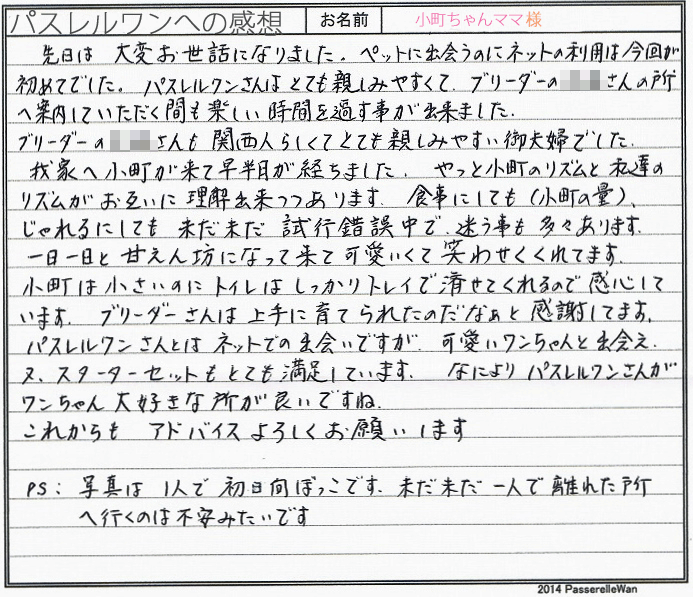 パスレルワンへの感想 お名前 小町ちゃんママ様
先日は 大変お世話になりました。ペットに出会うのにネットの利用は今回が
初めてでした。パスレルワンさんはとても親しみやすくて、ブリーダーの さんの所
へ案内していただく間も楽しい時間を過す事が出来ました。
ブリーダーの さんも 関西人らしくてとても親しみやすい御夫婦でした。
我家へ小町が来て早半月が経ちました。 やっと小町のリズムと私達の
リズムがお互いに理解出来つつあります。食事にしても(小町の量)、
じゃれるにしても 未だ未だ 試行錯誤中で、迷う事も多々あります。
一日一日と甘えん坊になって来て可愛いくて笑わせくくれてます。
小町は小さいのにトイレはしっかりトレイで済せてくれるので感心して
います。ブリーダーさんは上手に育てられたのだなぁと感謝してます。
パスレルワンさんとはネットでの出会いですが、可愛いワンちゃんと出会え、
又、スターターセットもとても満足しています。 なによりパスレルワンさんが
ワンちゃん大好きな所が良いですね。
これからも アドバイスよろしくお願いします
PS: 写真は 1人で初日向ぼっこです。未だ未だ一人で離れた所
へ行くのは不安みたいです
2014 PasserelleWan